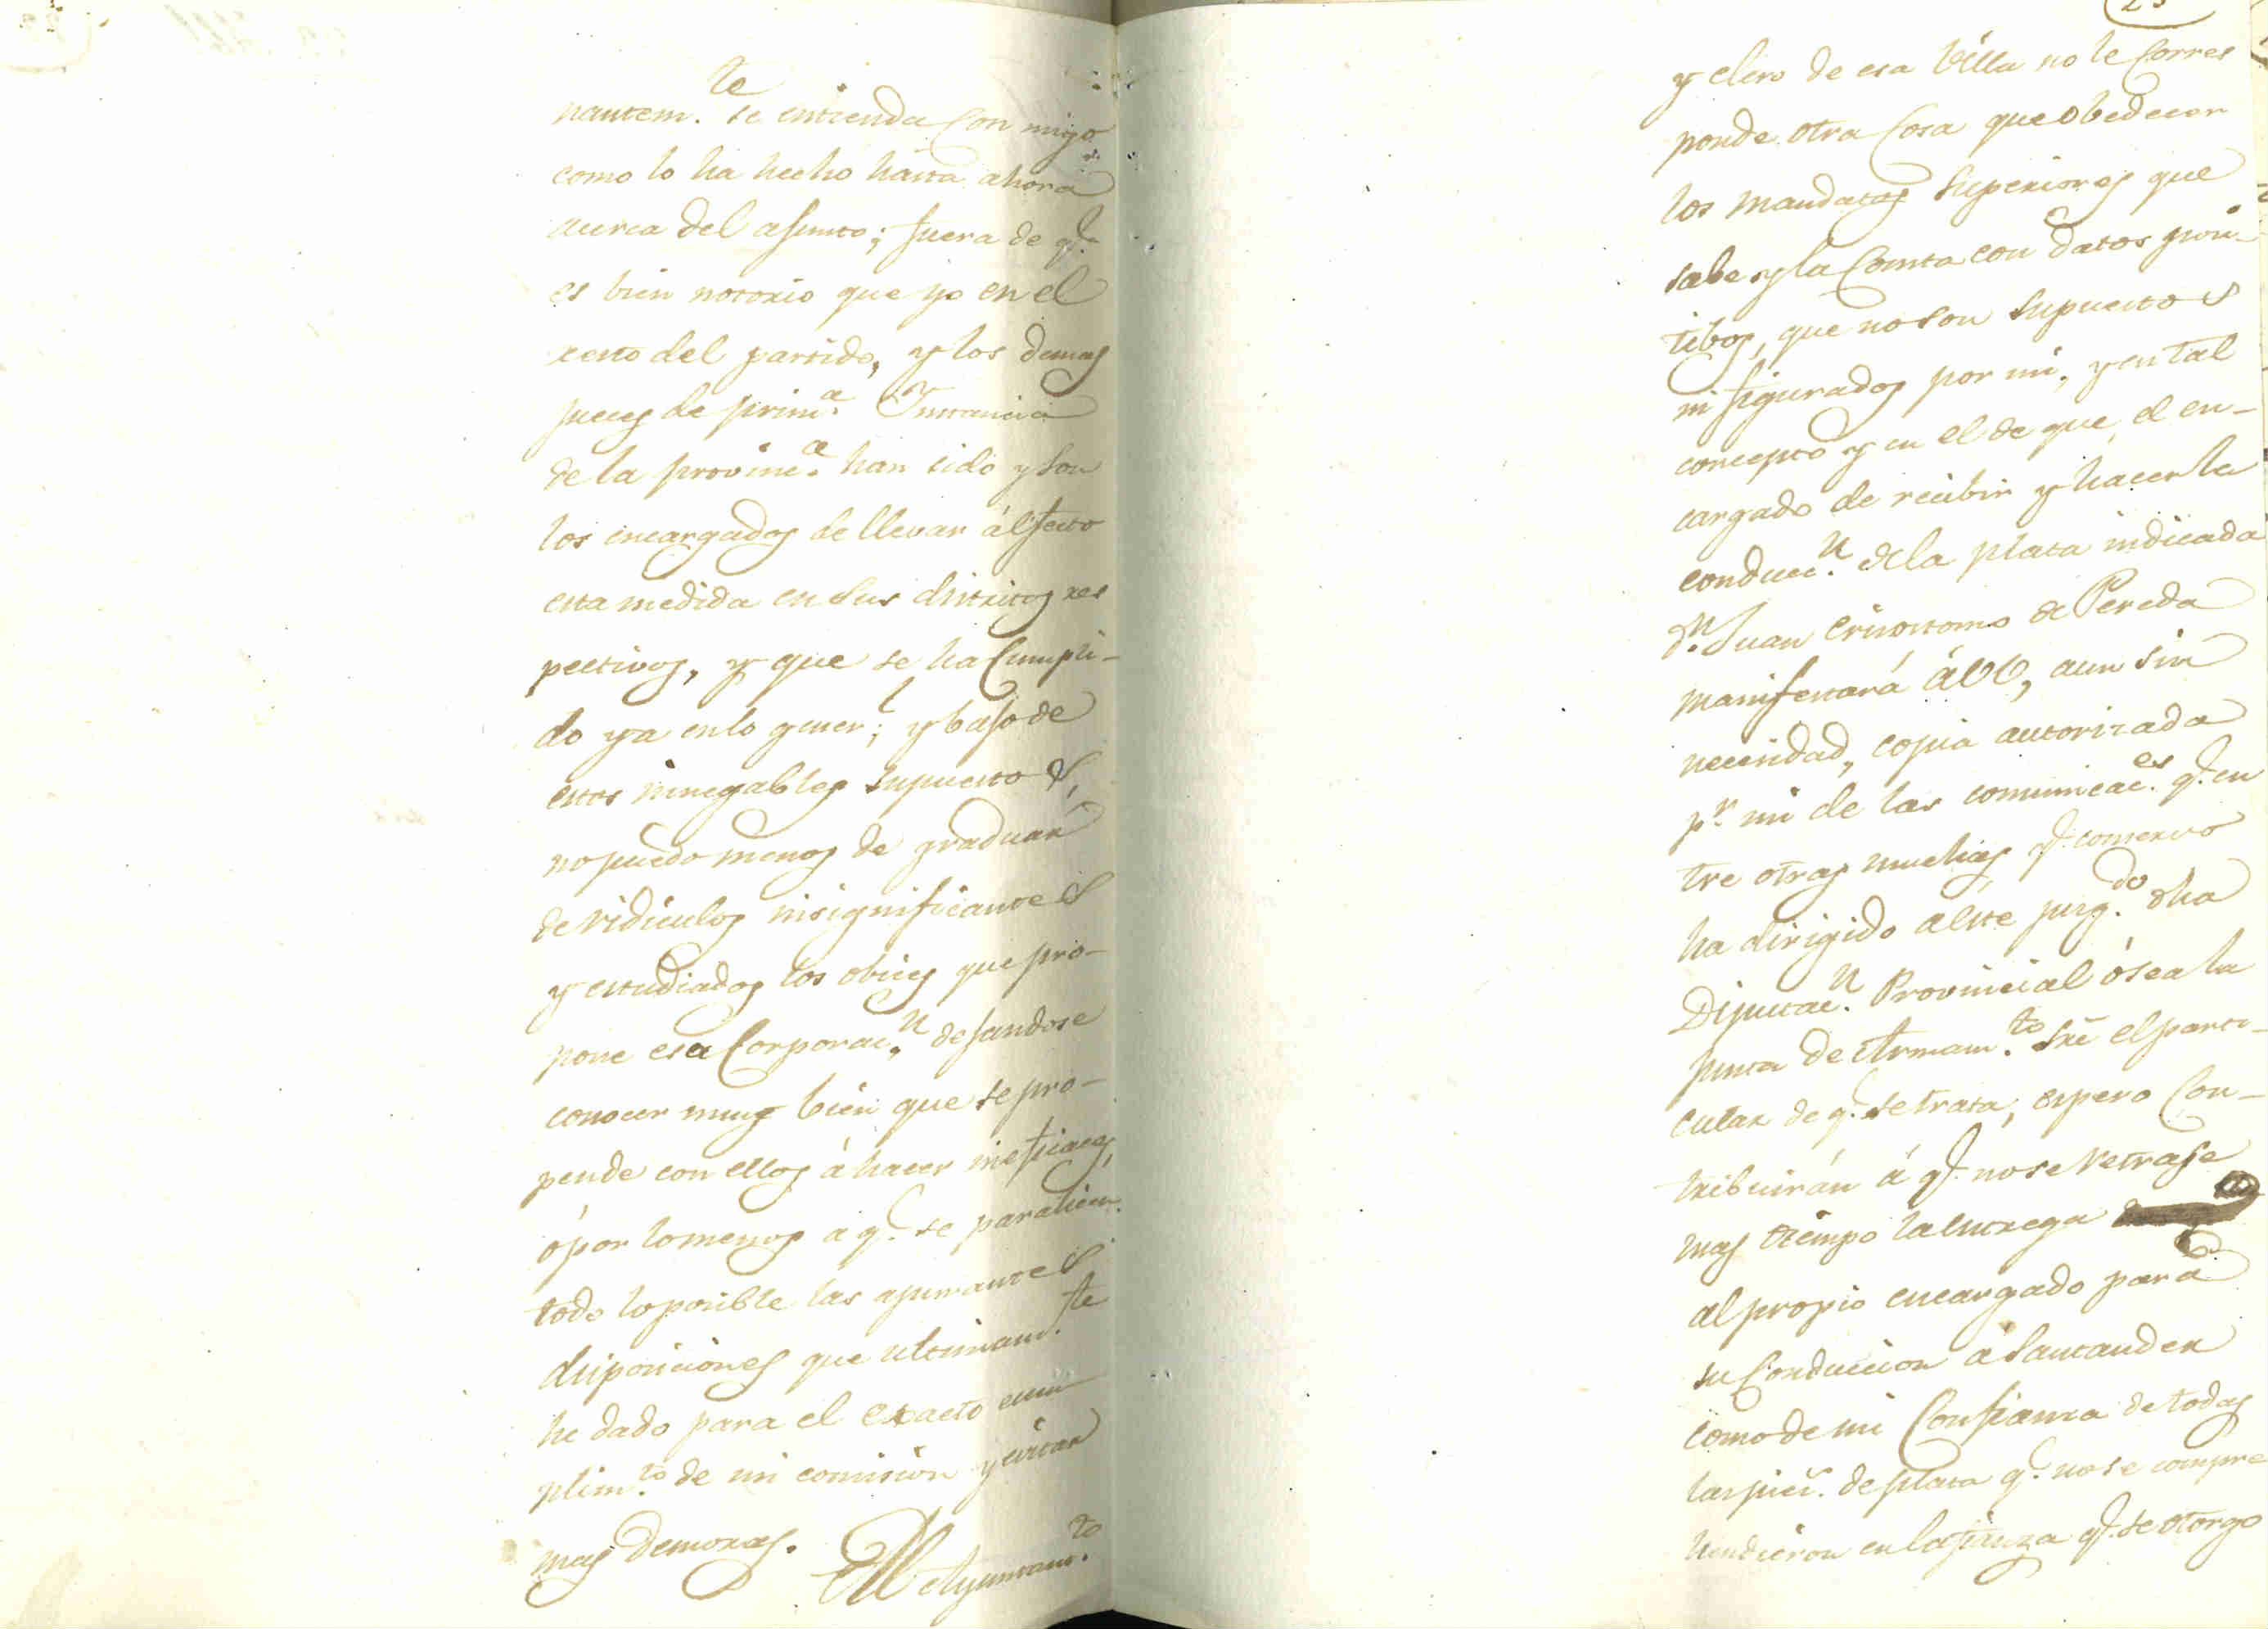 nantem.te se entienda con migo
como lo ha hecho hasta ahora
acerca del asunto; fuera de q.e
es bien notorio que yo en el
resto del partido, y los demas
jueces de prim.a Instancia
de la provinc.a han sido y son
los encargados de llevar á efecto
esta medida en sus distritos res
pectivos, y que se ha cumpli-
do ya en lo gener.l; y bajo de
estos innegables supuestos,
no puedo menos de graduar
de ridiculos insignificantes
y estudiados los obices que pro-
pone esa Corporac.n dejandose
conocer muy bien que se pro-
pende con ellos á hacer ineficaces,
ó por lo menos a q.e se paralicen
todo lo posible las apremiantes
disposiciones que ultimam.te
he dado para el exacto cum
plim.to de mi comision y evitar
mas demoras. El Ayuntam.to
23
y clero de esa Villa no le corres
ponde otra cosa que obedecer
los mandatos superiores que
sabe y la consta con datos posi-
tibos, que no son supuestos
ni figurados por mi, y en tal
concepto y en el de que, el en-
cargado de recibir y hacer la
conducc.n de la plata indicada
d.n Juan Crisostomo de Pereda
manifestará á VV, aun sin
necesidad, copia autorizada
p.r mi de las comunicac.es q.e en
tre otras muchas q.e conservo
ha dirigido a este juzg.do dha
Diputac.n Provincial ó sea la
junta de Armam.to sre el parti-
cular de q.e se trata, espero con-
tribuirán á q.e no se retrase
mas tiempo la entrega
al propio encargado para
su conduccion á Santander
como de mi confianza de todas
las piez.s de plata q.e no se compre
hendieron en la fianza q.e se otorgo